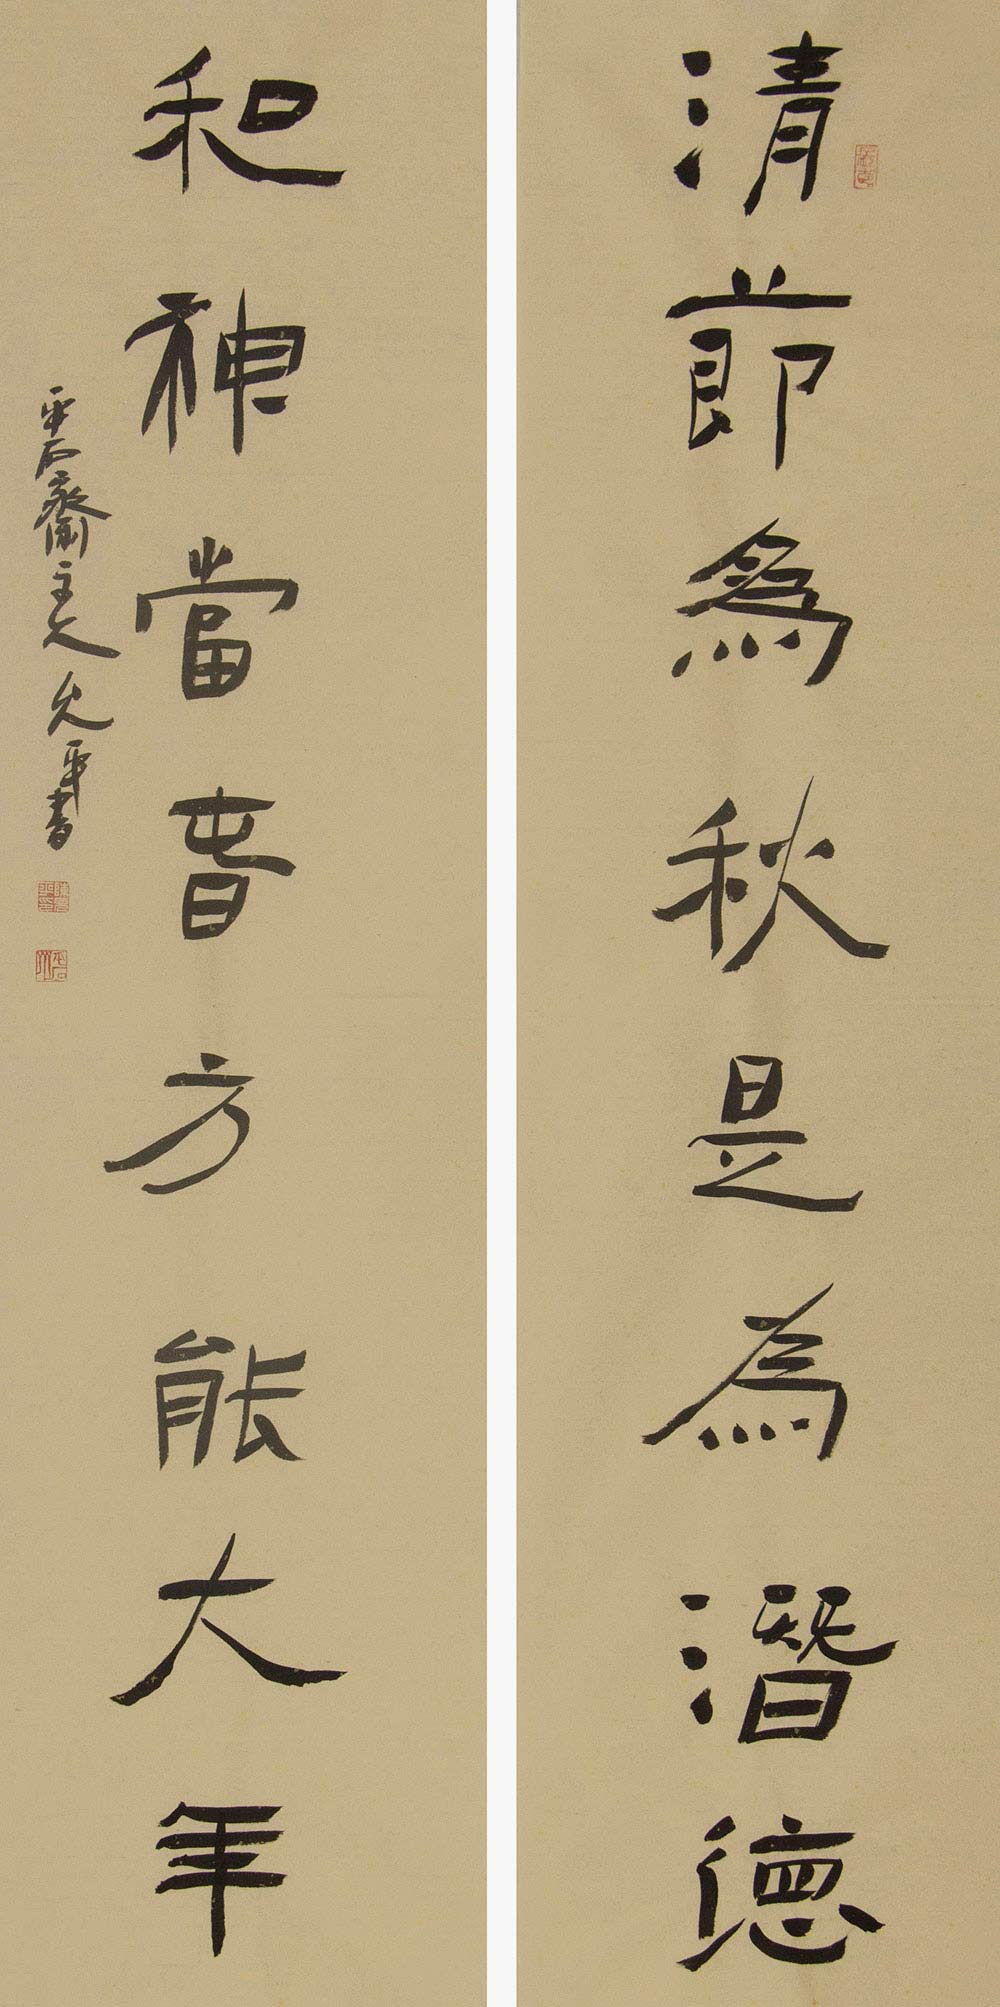 清節為秋是為潛德
和神當旾方能大年
平石齋主人允平書